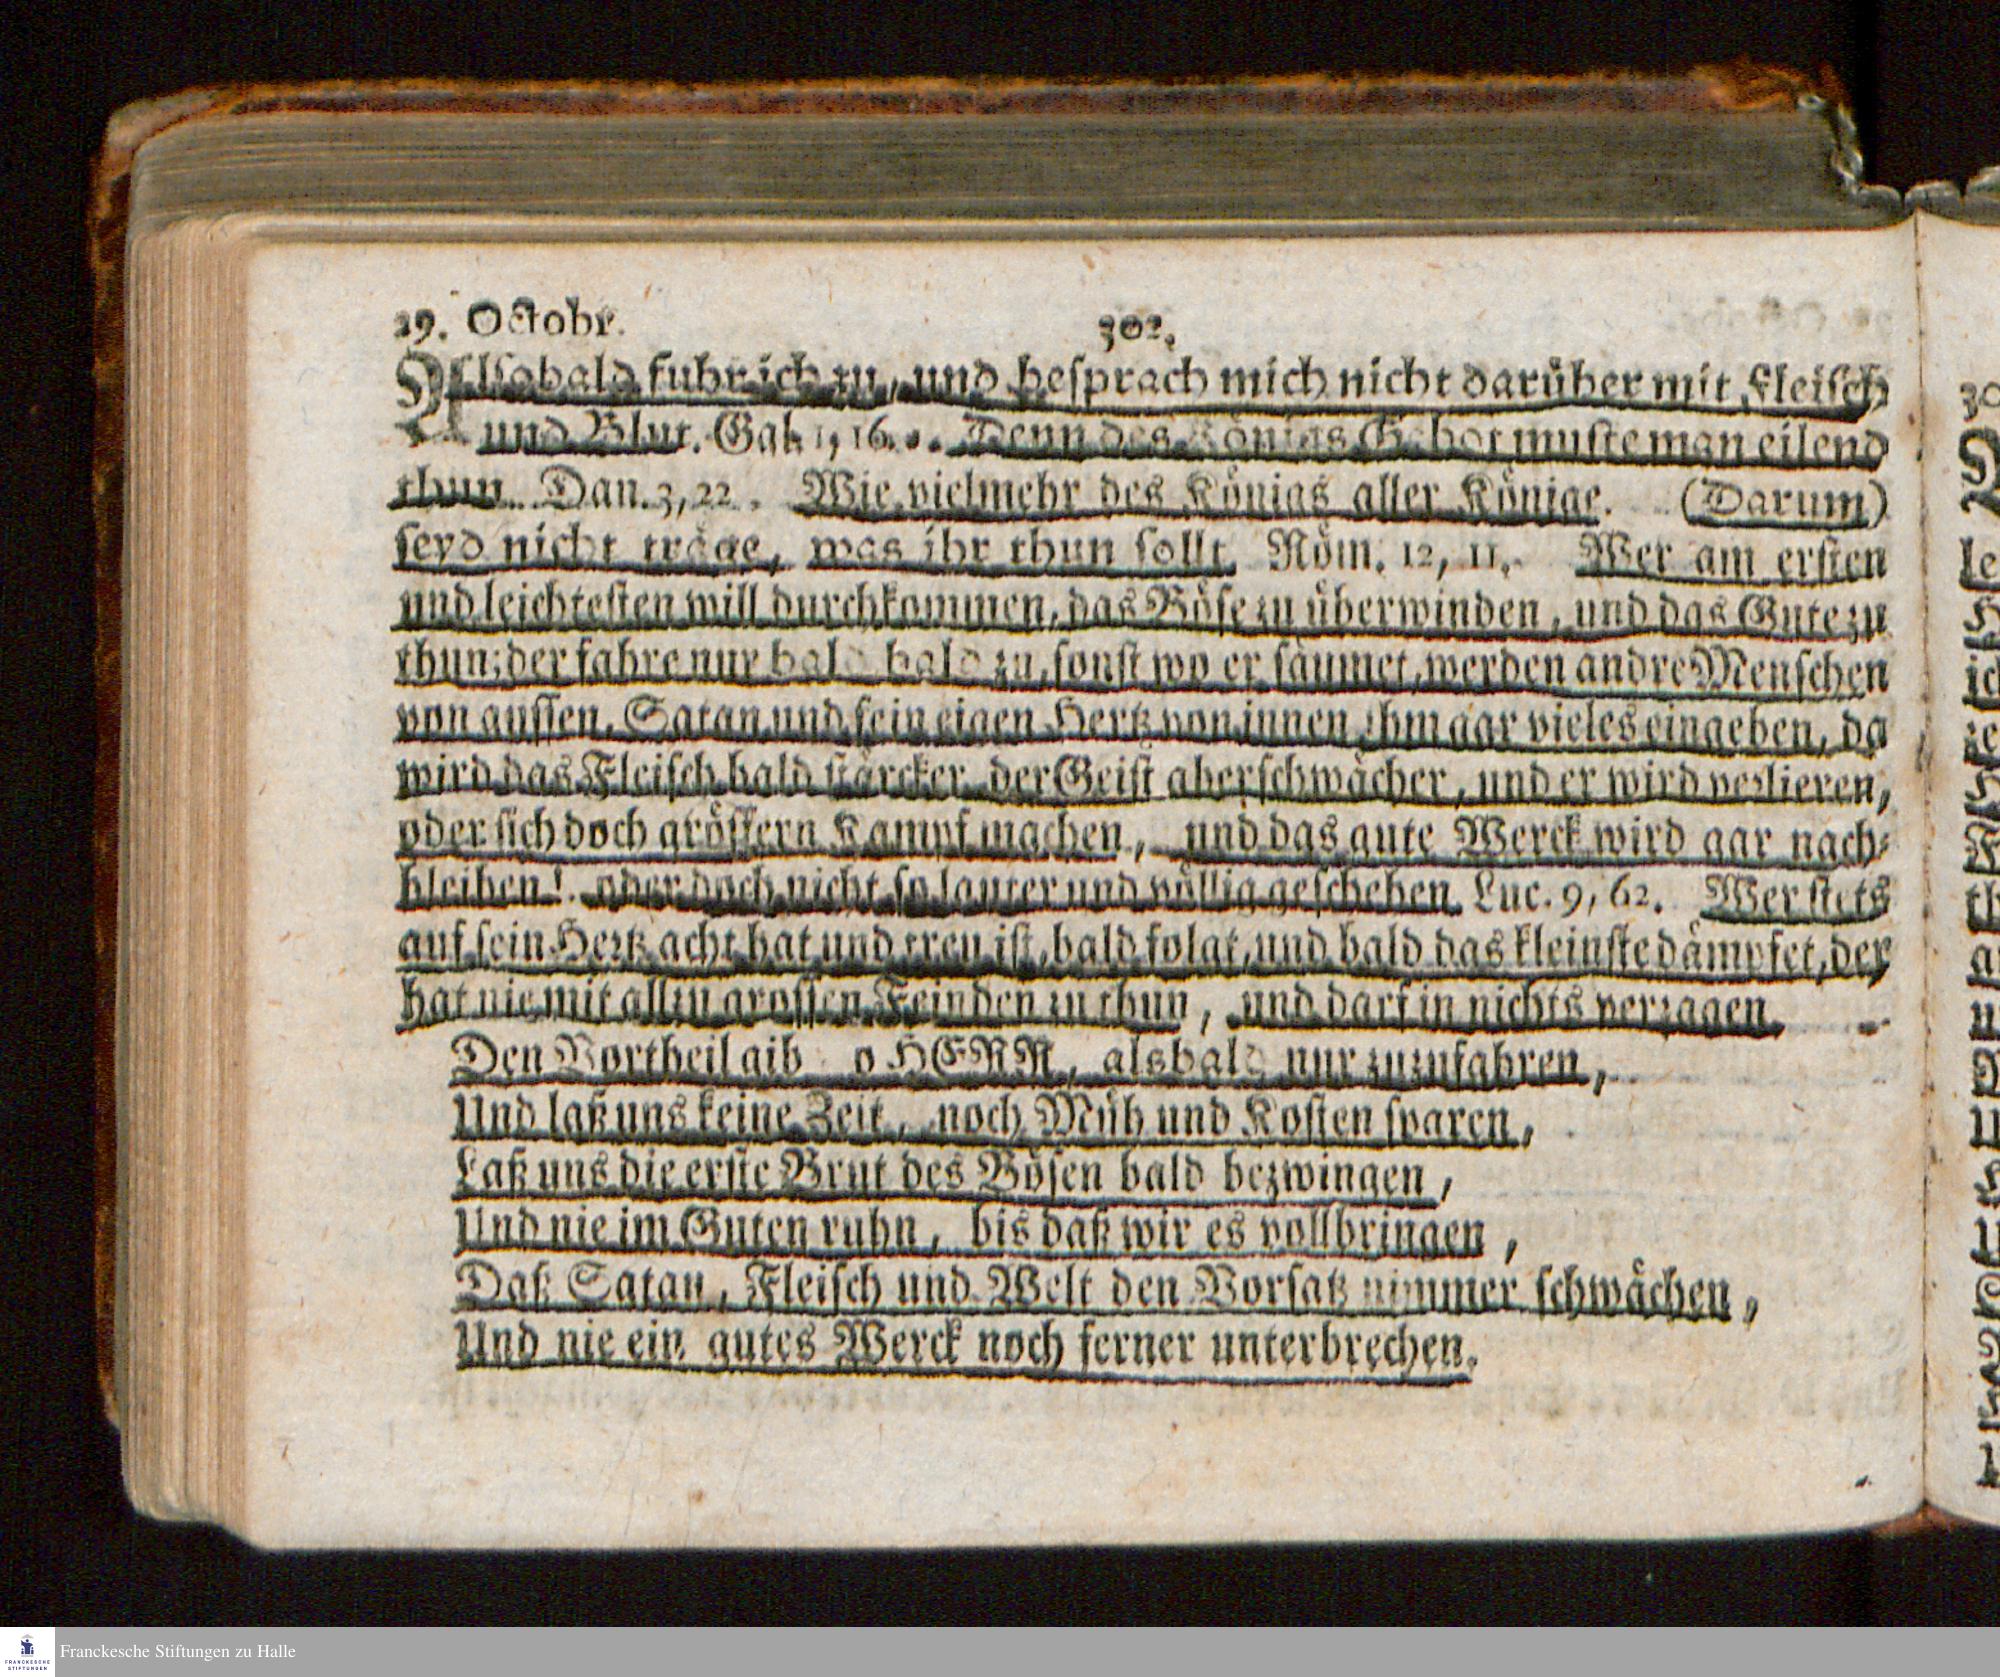 29. Octobr. 302.
Alsobald fuhr ich zu, und besprach mich nicht darüber mit Fleisch
und Blut. Gal. 1, 16. Denn des Königs Gebot muste man eilend
thun. Dan. 3, 22. Wie vielmehr des Königs aller Könige. (Darum)
seyd nicht träge, was ihr thun sollt. Röm. 12, 11. Wer am ersten
und leichtesten will durchkommen, das Böse zu überwinden, und das Gute zu
thun; der fahre nur bald bald zu, sonst wo er säumet, werden andre Menschen
von aussen, Satan und sein eigen Hertz von innen ihm gar vieles eingeben, da
wird das Fleisch bald stärcker, der Geist aber schwächer, und er wird verlieren,
oder sich doch grössern Kampf machen, und das gute Werck wird gar nach-
bleiben! oder doch nicht so lauter und völlig geschehen. Luc. 9, 62. Wer stets
auf sein Hertz acht hat und treu ist, bald folgt, und bald das kleinste dämpfet, der
hat nie mit allzu grossen Feinden zu thun, und darf in nichts verzagen.
Den Vortheil gib o HERR, alsbald nur zuzufahren,
Und laß uns keine Zeit, noch Müh und Kosten sparen,
Laß uns die erste Brut des Bösen bald bezwingen,
Und nie im Guten ruhn, bis daß wir es vollbringen,
Daß Satan, Fleisch und Welt den Vorsatz nimmer schwächen,
Und nie ein gutes Werck noch ferner unterbrechen.
FRANCKESCHE
STIFTUNGEN
Franckesche Stiftungen zu Halle